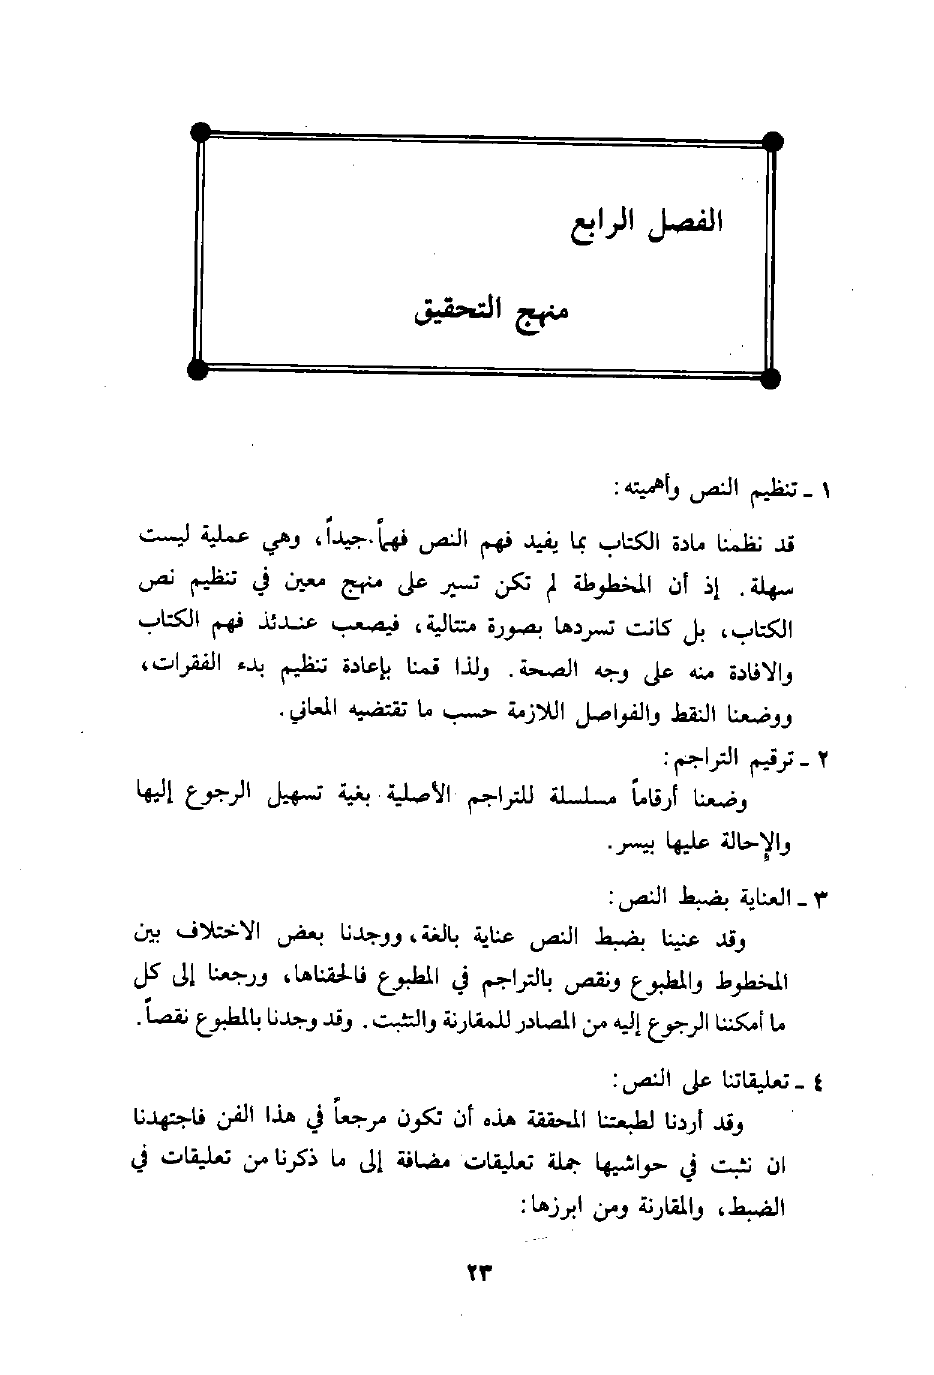 الفصل الرابع
منهج التحقيق
١ ـ تنظيم النص وأهميته:
قد نظمنا مادة الكتاب بما يفيد فهم النص فهماً جيداً، وهي عملية ليست
سهلة. إذ أن المخطوطة لم تكن تسير على منهج معين في تنظيم نص
الكتاب، بل كانت تسردها بصورة متتالية، فيصعب عندئذ فهم الكتاب
والافادة منه على وجه الصحة. ولذا قمنا بإعادة تنظيم بدء الفقرات،
ووضعنا النقط والفواصل اللازمة حسب ما تقتضيه المعاني.
٢ ـ ترقيم التراجم:
وضعنا أرقاماً مسلسلة للتراجم الأصلية بغية تسهيل الرجوع إليها
والإحالة عليها بيسر.
٣ ـ العناية بضبط النص:
وقد عنينا بضبط النص عناية بالغة، ووجدنا بعض الاختلاف بين
المخطوط والمطبوع ونقص بالتراجم في المطبوع فالحقناها، ورجعنا إلى كل
ما أمكننا الرجوع إليه من المصادر للمقارنة والتثبت. وقد وجدنا بالمطبوع نقصاً.
٤ ـ تعليقاتنا على النص:
وقد أردنا لطبعتنا المحققة هذه أن تكون مرجعاً في هذا الفن فاجتهدنا
ان نثبت في حواشيها جملة تعليقات مضافة إلى ما ذكرنا من تعليقات في
الضبط، والمقارنة ومن ابرزها:
٢٣